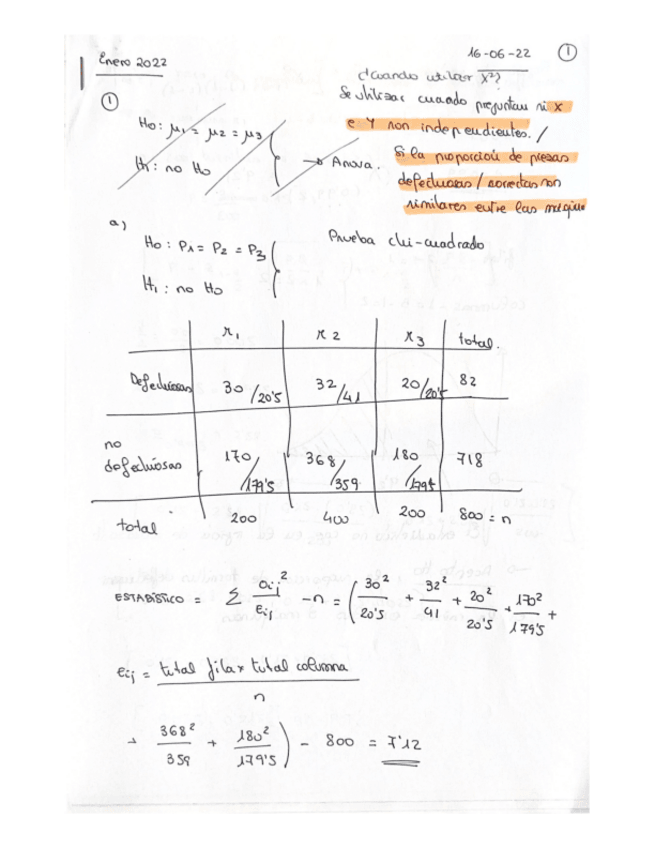 Enero 2022
16-06-22 ①
①
¿Cuando utilizar X²?
Se utilizar cuando preguntan si x
e Y son independientes. /
Si la proporción de piezas
defectuosas / correctas son
similares entre las máquin
H₀: μ₁ = μ₂ = μ₃
→ Anova.
H₁: no H₀
a)
H₀: P₁ = P₂ = P₃
Prueba chi-cuadrado
H₁: no H₀
x₁ x₂ x₃ total.
Defectuosas 30/20'5 32/41 20/20'5 82
no
defectuosas 170/179'5 368/359 180/179'5 718
total 200 400 200 800 = n
ESTADÍSTICO = Σ oᵢⱼ²/eᵢⱼ - n = (30²/20'5 + 32²/41 + 20²/20'5 + 170²/179'5 +
eᵢⱼ = total fila x total columna / n
→ 368²/359 + 180²/179'5) - 800 = 7'12